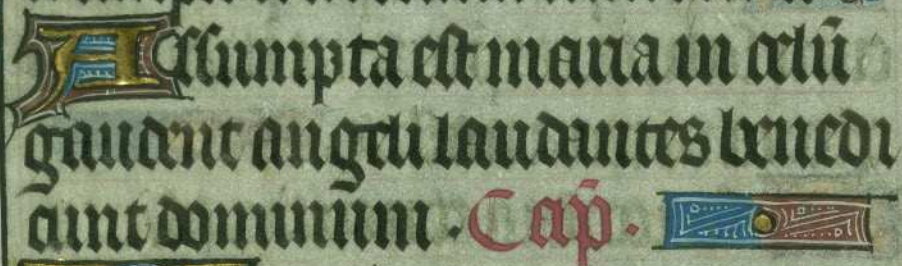 Assumpta est maria in celū
gaudent angeli laudantes benedi
cunt dominum. Cap̄.